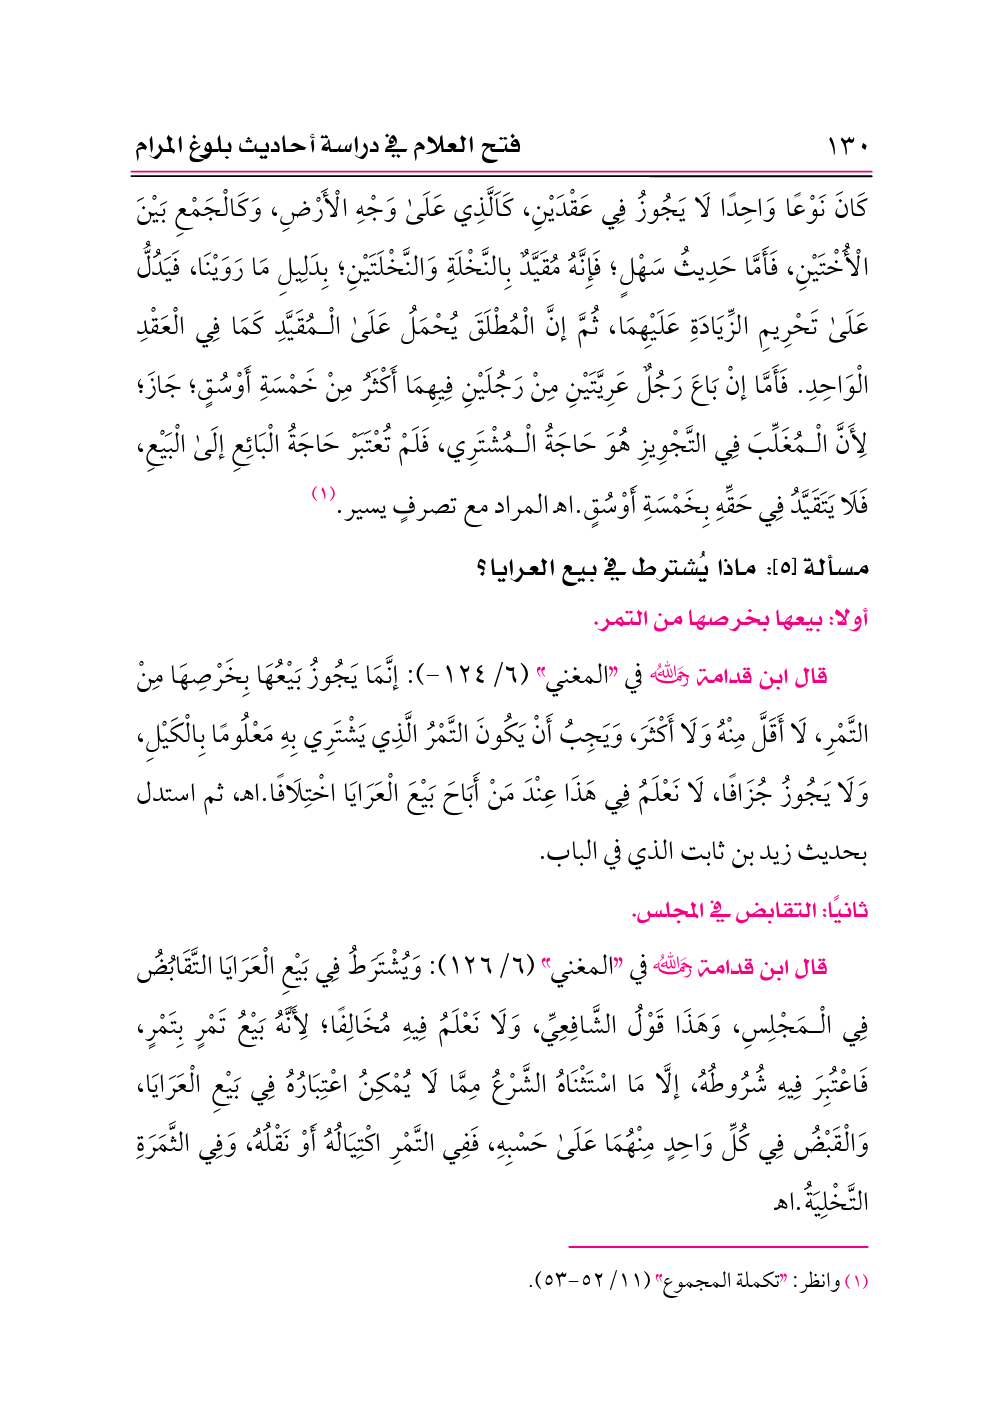 ١٣٠ فتح العلام في دراسة أحاديث بلوغ المرام
كَانَ نَوْعًا وَاحِدًا لَا يَجُوزُ فِي عَقْدَيْنِ، كَالَّذِي عَلَىٰ وَجْهِ الْأَرْضِ، وَكَالْجَمْعِ بَيْنَ
الْأُخْتَيْنِ، فَأَمَّا حَدِيثُ سَهْلٍ؛ فَإِنَّهُ مُقَيَّدٌ بِالنَّخْلَةِ وَالنَّخْلَتَيْنِ؛ بِدَلِيلِ مَا رَوَيْنَا، فَيَدُلُّ
عَلَىٰ تَحْرِيمِ الزِّيَادَةِ عَلَيْهِمَا، ثُمَّ إنَّ الْمُطْلَقَ يُحْمَلُ عَلَىٰ الْـمُقَيَّدِ كَمَا فِي الْعَقْدِ
الْوَاحِدِ. فَأَمَّا إنْ بَاعَ رَجُلٌ عَرِيَّتَيْنِ مِنْ رَجُلَيْنِ فِيهِمَا أَكْثَرُ مِنْ خَمْسَةِ أَوْسُقٍ؛ جَازَ؛
لِأَنَّ الْـمُغَلِّبَ فِي التَّجْوِيزِ هُوَ حَاجَةُ الْـمُشْتَرِي، فَلَمْ تُعْتَبَرْ حَاجَةُ الْبَائِعِ إلَىٰ الْبَيْعِ،
فَلَا يَتَقَيَّدُ فِي حَقِّهِ بِخَمْسَةِ أَوْسُقٍ.اﻫ المراد مع تصرفٍ يسير.(١)
مسألة [٥]: ماذا يُشترط في بيع العرايا؟
أولا: بيعها بخرصها من التمر.
قال ابن قدامة رحمه الله في "المغني" (٦/ ١٢٤-): إنَّمَا يَجُوزُ بَيْعُهَا بِخَرْصِهَا مِنْ
التَّمْرِ، لَا أَقَلَّ مِنْهُ وَلَا أَكْثَرَ، وَيَجِبُ أَنْ يَكُونَ التَّمْرُ الَّذِي يَشْتَرِي بِهِ مَعْلُومًا بِالْكَيْلِ،
وَلَا يَجُوزُ جُزَافًا، لَا نَعْلَمُ فِي هَذَا عِنْدَ مَنْ أَبَاحَ بَيْعَ الْعَرَايَا اخْتِلَافًا.اﻫ، ثم استدل
بحديث زيد بن ثابت الذي في الباب.
ثانيًا: التقابض في المجلس.
قال ابن قدامة رحمه الله في "المغني" (٦/ ١٢٦): وَيُشْتَرَطُ فِي بَيْعِ الْعَرَايَا التَّقَابُضُ
فِي الْـمَجْلِسِ، وَهَذَا قَوْلُ الشَّافِعِيِّ، وَلَا نَعْلَمُ فِيهِ مُخَالِفًا؛ لِأَنَّهُ بَيْعُ تَمْرٍ بِتَمْرٍ،
فَاعْتُبِرَ فِيهِ شُرُوطُهُ، إلَّا مَا اسْتَثْنَاهُ الشَّرْعُ مِمَّا لَا يُمْكِنُ اعْتِبَارُهُ فِي بَيْعِ الْعَرَايَا،
وَالْقَبْضُ فِي كُلِّ وَاحِدٍ مِنْهُمَا عَلَىٰ حَسْبِهِ، فَفِي التَّمْرِ اكْتِيَالُهُ أَوْ نَقْلُهُ، وَفِي الثَّمَرَةِ
التَّخْلِيَةُ.اﻫ
(١) وانظر: "تكملة المجموع" (١١/ ٥٢-٥٣).